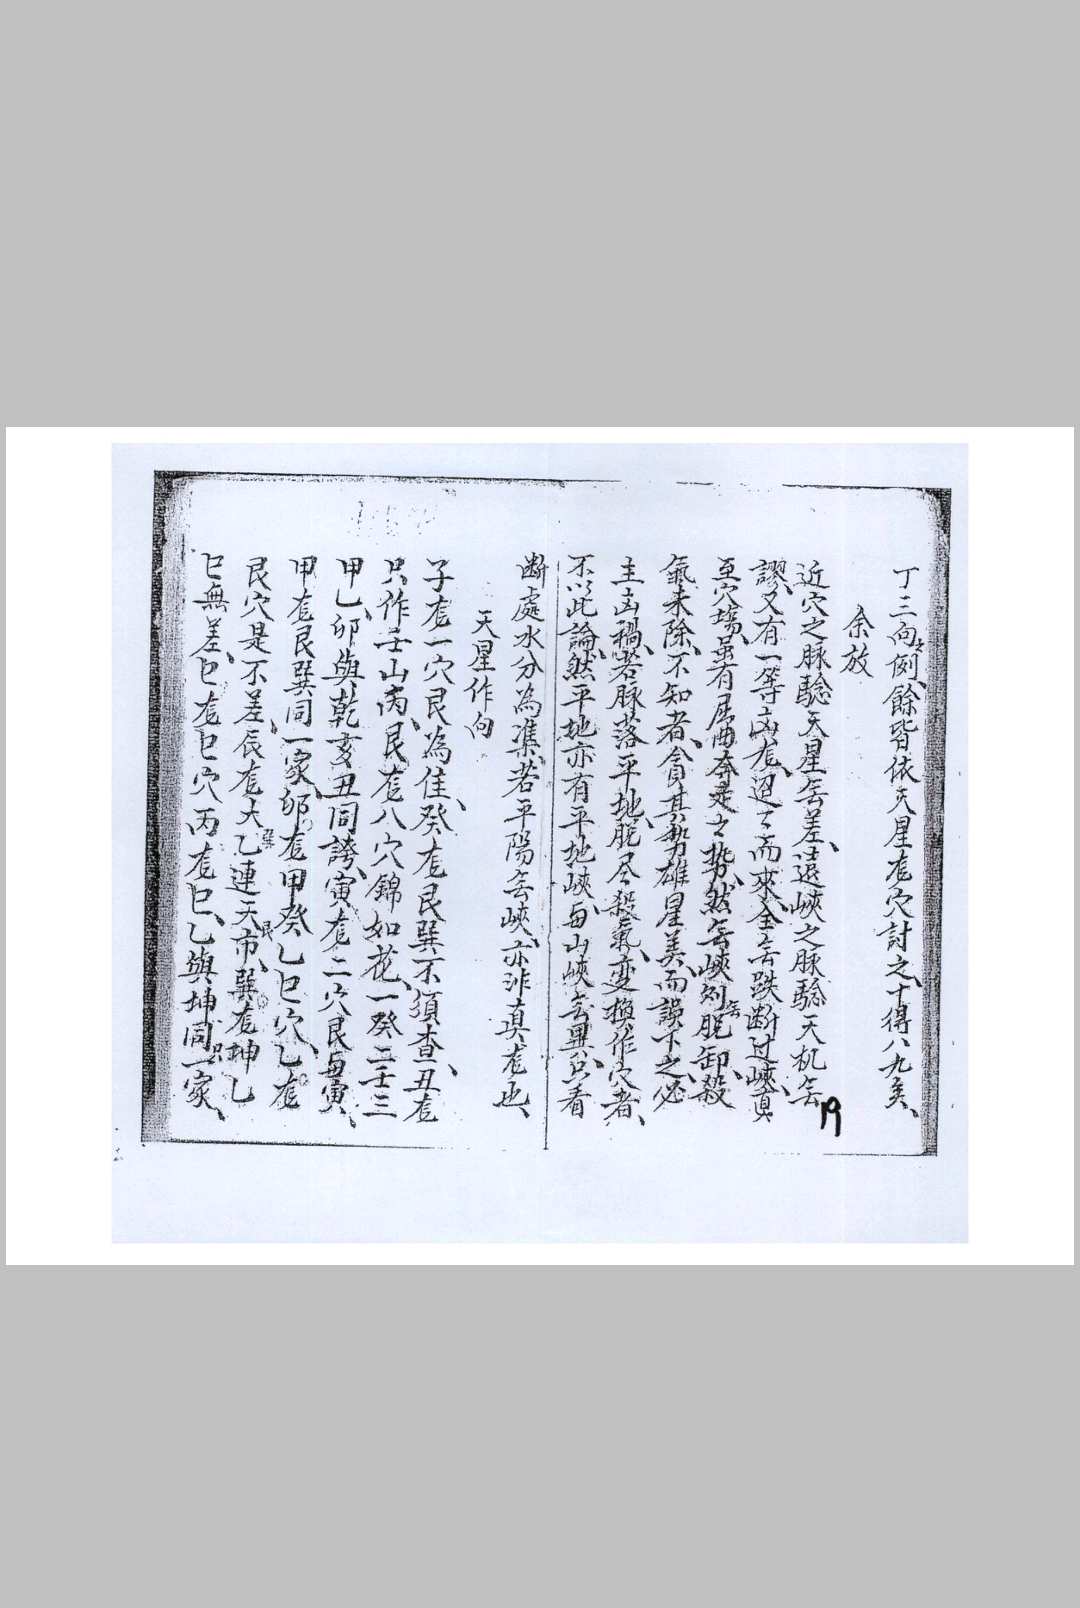 丁三向之例、餘皆依天星龙穴討之、十得八九矣、
余放
近穴之脉驗天星無差、遠峽之脉驗天机無
謬、又有一等凶龙、迢々而來、全無跌断过峽、直
至穴塲、虽有屈曲奔走之势、然無峽則無脫卸、殺
氣未除、不知者、貪其势雄星美、而誤下之、必
主凶禍、若脉落平地、脫尽殺氣、变換作穴者、
不以此論、然平地亦有平地峽、与山峽無異、只看
断處水分為準、若平陽無峽、亦非真龙也、
天星作向
子龙一穴艮為佳、癸龙艮巽不須查、丑龙
只作壬山丙、艮龙八穴錦如花、一癸二壬三
甲乙、卯與乾亥丑同誇、寅龙二穴艮与寅、
甲龙艮巽同一家、卯龙甲癸乙巳穴、乙龙
艮穴是不差、辰龙太乙巽連天市艮、巽龙坤乙
巳無差、巳龙巳穴丙龙巳、乙與坤同只一家、
19